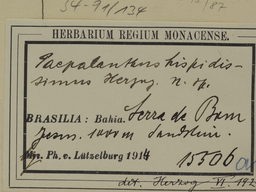 34-91/134
HERBARIUM REGIUM MONACENSE.
Paepalanthus hispidis-
simus Herzog. n. sp.
BRASILIA: Bahia. Serra de Bom
Jesus. 1000 m Sandstein.
leg. Ph. v. Lützelburg 1914 15506
det. Herzog VI. 192